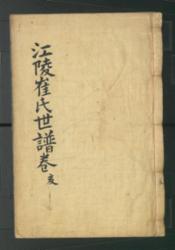 江陵崔氏世譜卷亥